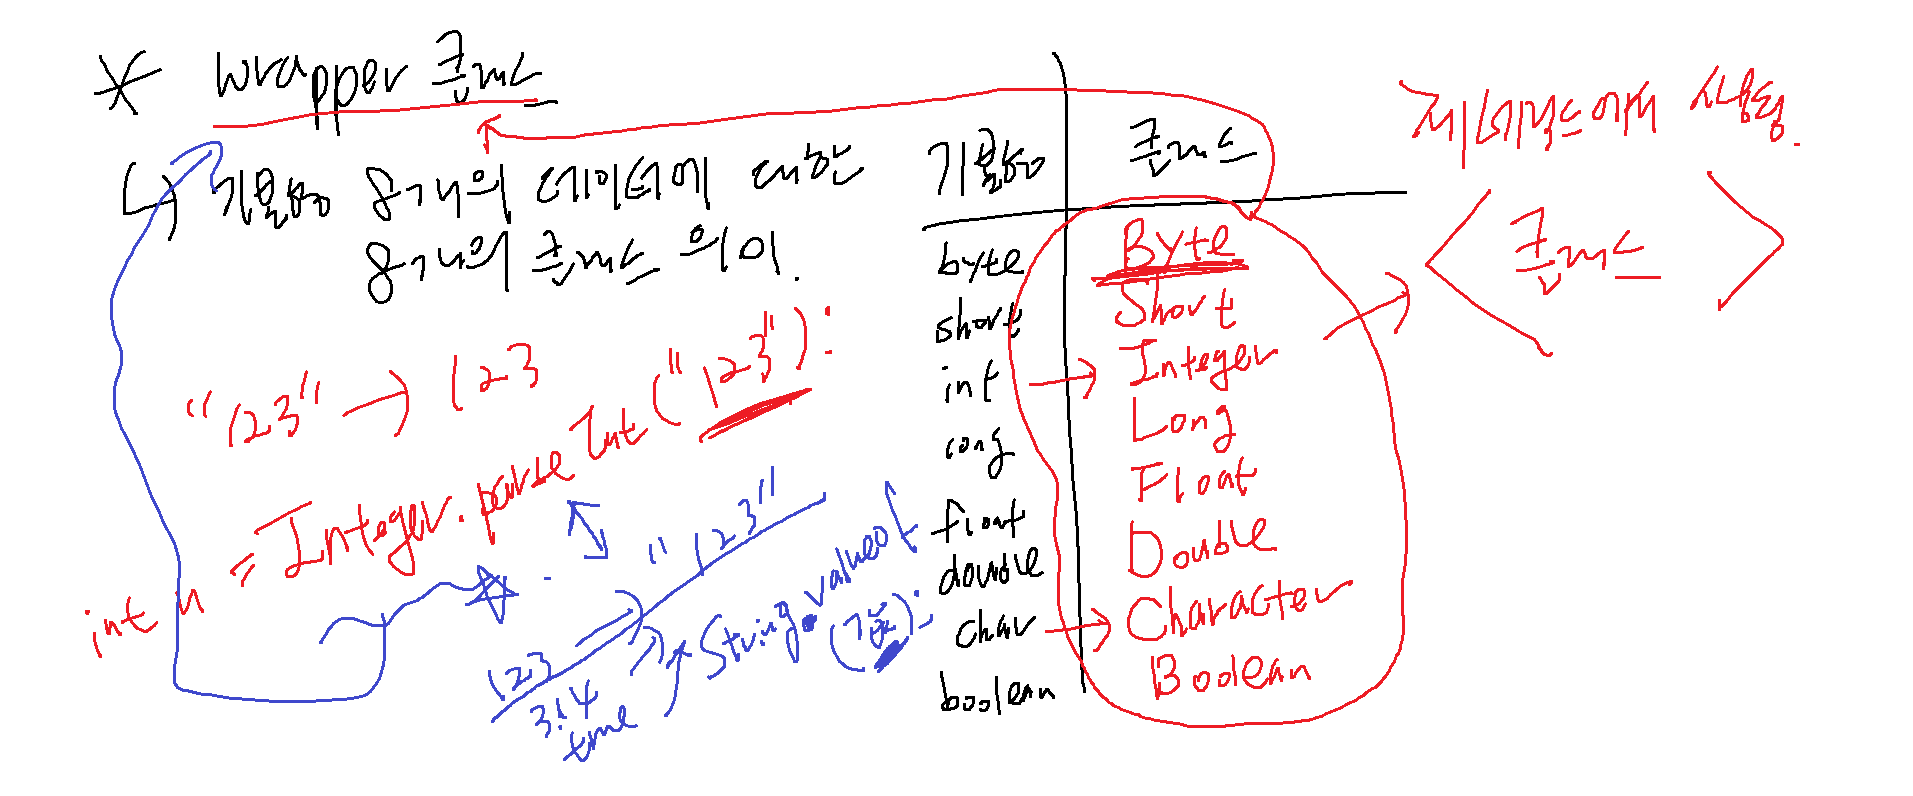 * wrapper 클래스
↳ 기본형 8개의 데이터에 대한
8개의 클래스 의미.
"123" → 123
int n = Integer.parseInt("123");
123 ⇒ "123"
3.14
true
String.valueOf
(기본);
기본형 클래스
byte Byte
short Short
int → Integer
long Long
float Float
double Double
char → Character
boolean Boolean
제네릭스에서 사용됨.
< 클래스 >